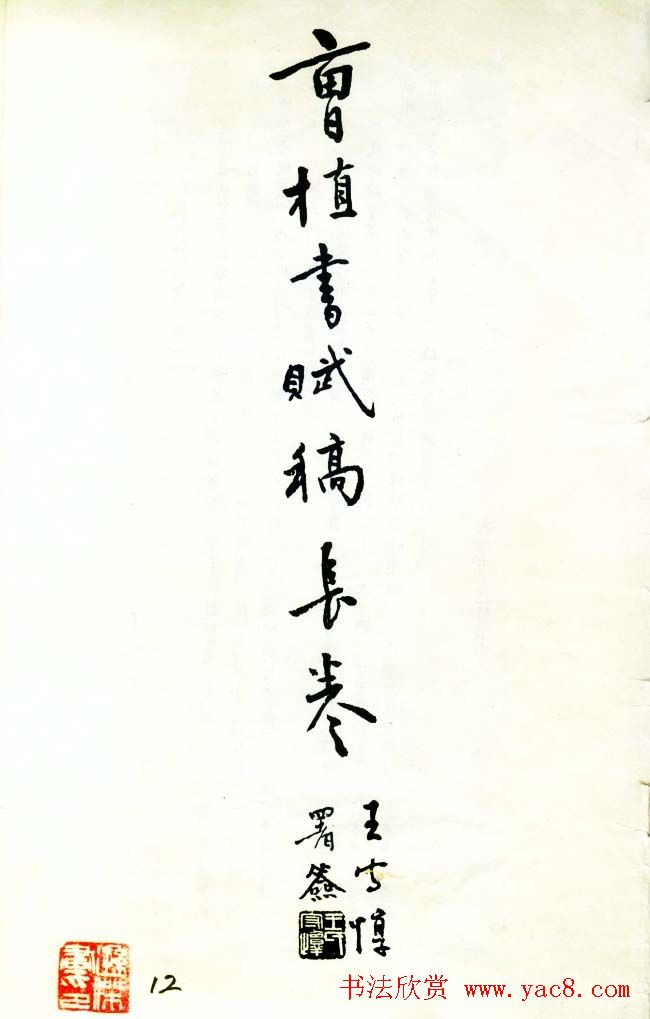 曹植書賦稿長卷
王守惇
署簽
12
书法欣赏 www.yac8.com